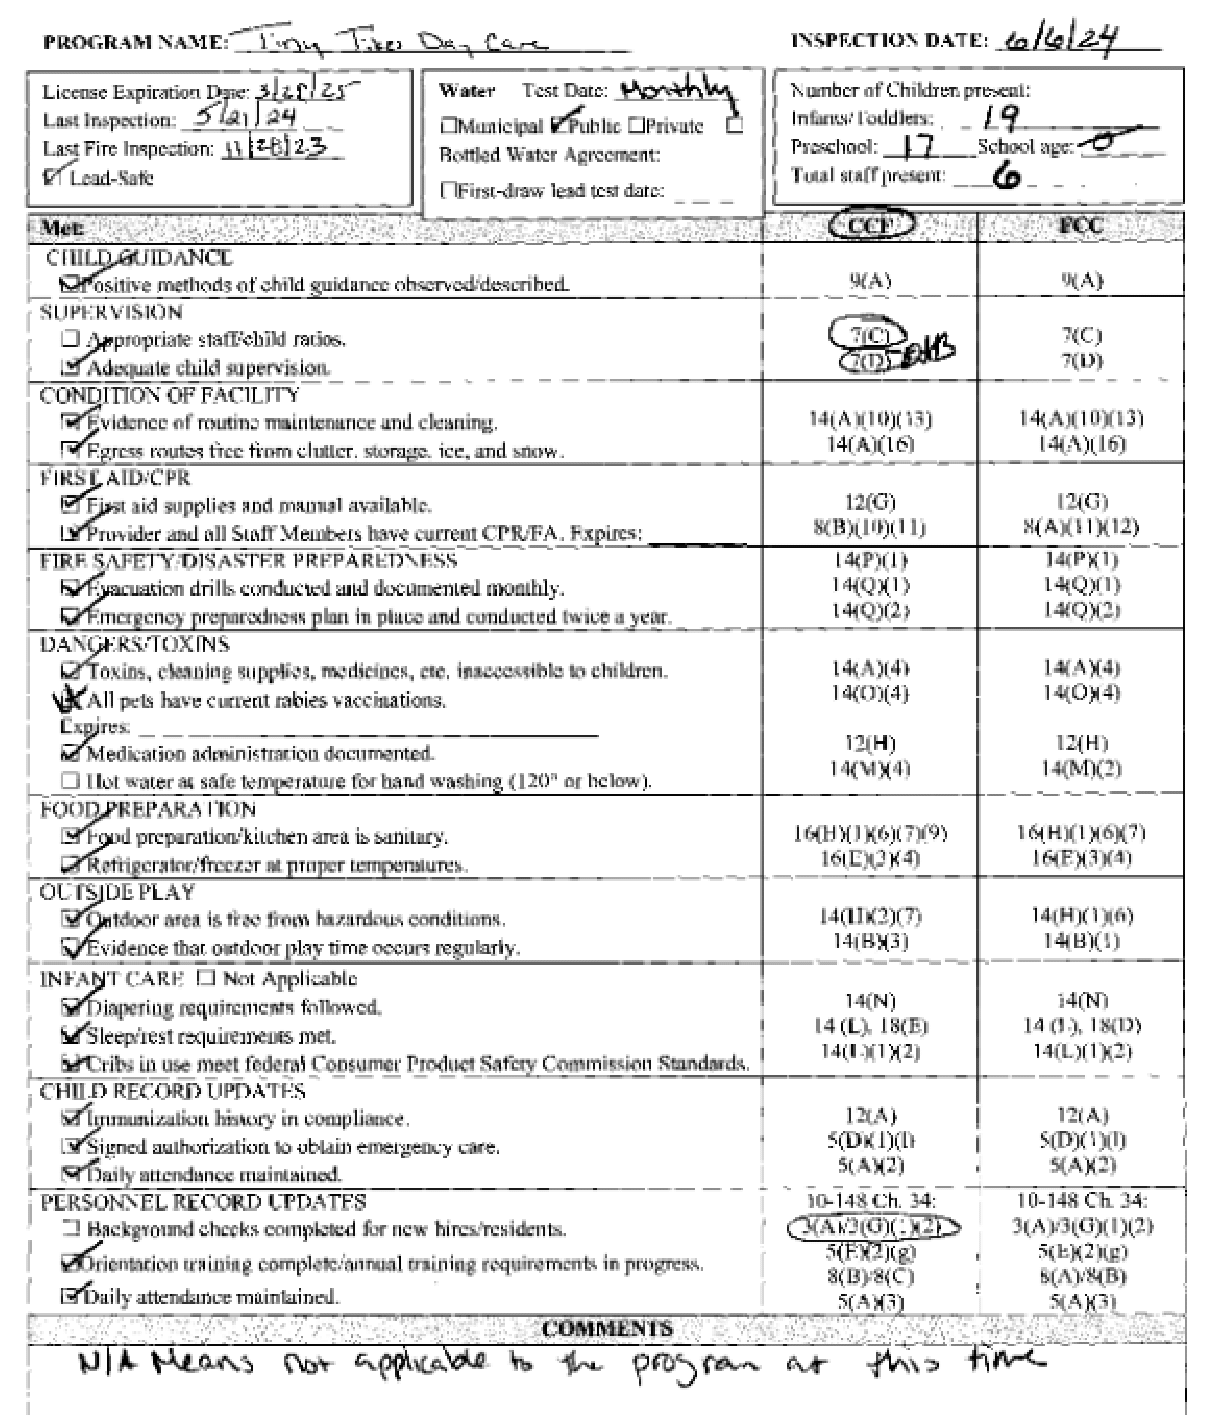 PROGRAM NAME: Tiny Tikes Day Care INSPECTION DATE: 6/6/24
License Expiration Date: 3/28/25
Last Inspection: 5/21/24
Last Fire Inspection: 11/28/23
Lead-Safe
Water Test Date: Monthly
Municipal Public Private
Bottled Water Agreement:
First-draw lead test date:
Number of Children present:
Infants/Toddlers: 19
Preschool: 17 School age: 0
Total staff present: 6
Met: CCF FCC
CHILD GUIDANCE
Positive methods of child guidance observed/described. 9(A) 9(A)
SUPERVISION
Appropriate staff/child ratios. 7(C) 7(C)
Adequate child supervision. 7(D) 7(D)
CONDITION OF FACILITY
Evidence of routine maintenance and cleaning. 14(A)(10)(13) 14(A)(10)(13)
Egress routes free from clutter, storage, ice, and snow. 14(A)(16) 14(A)(16)
FIRST AID/CPR
First aid supplies and manual available. 12(G) 12(G)
Provider and all Staff Members have current CPR/FA. Expires: 8(B)(10)(11) 8(A)(11)(12)
FIRE SAFETY/DISASTER PREPAREDNESS 14(P)(1) 14(P)(1)
Evacuation drills conducted and documented monthly. 14(Q)(1) 14(Q)(1)
Emergency preparedness plan in place and conducted twice a year. 14(Q)(2) 14(Q)(2)
DANGERS/TOXINS
Toxins, cleaning supplies, medicines, etc. inaccessible to children. 14(A)(4) 14(A)(4)
All pets have current rabies vaccinations. 14(O)(4) 14(O)(4)
Expires:
Medication administration documented. 12(H) 12(H)
Hot water at safe temperature for hand washing (120° or below). 14(M)(4) 14(M)(2)
FOOD PREPARATION
Food preparation/kitchen area is sanitary. 16(H)(1)(6)(7)(9) 16(H)(1)(6)(7)
Refrigerator/freezer at proper temperatures. 16(E)(3)(4) 16(E)(3)(4)
OUTSIDE PLAY
Outdoor area is free from hazardous conditions. 14(H)(2)(7) 14(H)(1)(6)
Evidence that outdoor play time occurs regularly. 14(B)(3) 14(B)(1)
INFANT CARE Not Applicable
Diapering requirements followed. 14(N) 14(N)
Sleep/rest requirements met. 14 (L), 18(E) 14 (L), 18(D)
Cribs in use meet federal Consumer Product Safety Commission Standards. 14(L)(1)(2) 14(L)(1)(2)
CHILD RECORD UPDATES
Immunization history in compliance. 12(A) 12(A)
Signed authorization to obtain emergency care. 5(D)(1)(l) 5(D)(1)(l)
Daily attendance maintained. 5(A)(2) 5(A)(2)
PERSONNEL RECORD UPDATES 10-148 Ch. 34: 10-148 Ch. 34:
Background checks completed for new hires/residents. 3(A)/3(G)(1)(2) 3(A)/3(G)(1)(2)
5(E)(2)(g) 5(E)(2)(g)
Orientation training complete/annual training requirements in progress. 8(B)/8(C) 8(A)/8(B)
Daily attendance maintained. 5(A)(3) 5(A)(3)
COMMENTS
N/A Means not applicable to the program at this time